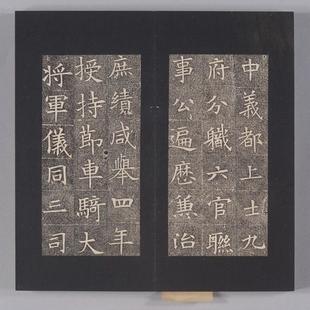 中義都上士九
府分職六官聮
事公遍歷兼治
庶績咸舉四年
授持節車騎大
將軍儀同三司